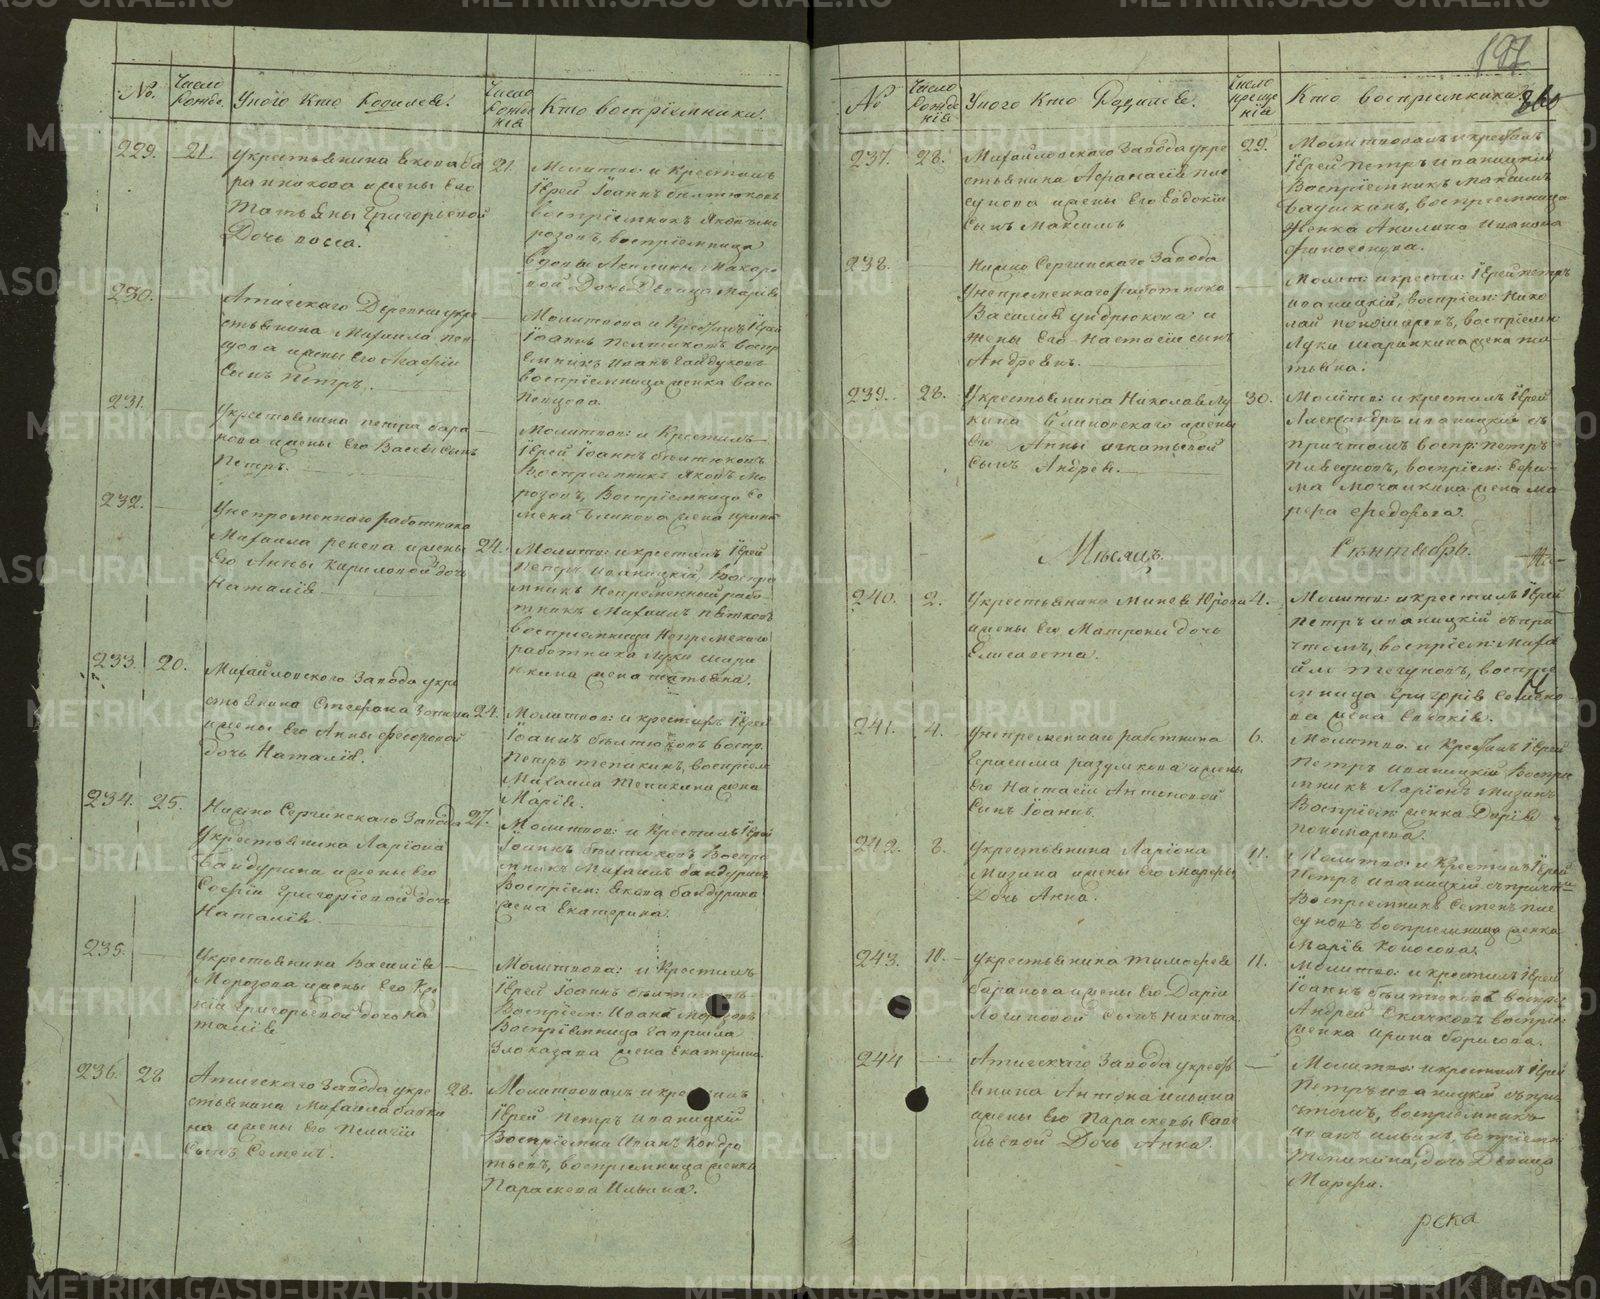 №.
Число рожде.
У кого Кто Родился.
Число рожде нія
Кто воспріемники.
229.
21.
У крестьянина Якова Ба
ранникова и жены Его
Татьяны Григорьевой
Дочь
21.
Молитвов: и Крестилъ
Іерей Іоаннъ
воспріемникъ Яковъ Мо
розовъ, воспріемница
вдовы Акилины Макаро
вой Дочь Девица Марія
230.
Атигскаго Деревни у кре
стьянина Михаила
и жены Его Агафіи
Сынъ Петръ.
Молитвова и Крестилъ Іерей
Іоаннъ воспр
емникъ Иванъ Гайдуковъ
воспріемница женка Васса
231.
У крестьянина петра Бара
нова и жены Его Васы сынъ
Петръ.
Молитвов: и Крестилъ
Іерей Іоаннъ
Воспріемникъ Яковъ Мо
розовъ, Воспріемница Се
мена Блинова жена Ирина
232.
У непременнаго работника
Михаила ренева и жены
Его Анны Кириловой дочь
Наталія
24.
Молитв: и крестилъ Іерей
Петръ Иваницкій, Воспріе
мникъ Непременный рабо
тникъ Михаилъ Пятковъ
воспріемница Непременнаго
работника Луки Шари
нкина жена татьяна.
233.
20.
Михайловскаго Завода у кре
стьянина Стефана Зотина
и жены Его Анны Федоровой
дочь Наталія.
24.
Молитвов: и крестилъ Іерей
Іоаннъ воспр.
Петръ Тепикинъ, воспріем
Михаила Тепикина жена
Марія.
234.
25.
Нижно Сергинскаго Завода
У крестьянина Ларіона
Бандурина и жены Его
Софіи Григоріевой дочь
Наталія.
27.
Молитвов: и Крестилъ Іерей
Іоаннъ Воспріе
мникъ Михаилъ бандуринъ
Воспріем: Екова бандурина
жена Екатерина.
235.
У крестьянина Василія
Морозова и жены Его Ксе
ніи Григорьевой дочь На
талія
Молитвова: и Крестилъ
Іерей Іоаннъ
Воспріем: Иванъ Морозовъ
Воспріемница Гаврила
Злоказова жена Екатерина.
236.
28
Атигскаго Завода у кре
стьянина Михаила бабки
на и жены Его Пелагіи
Сынъ Семенъ.
28.
Молитвовалъ и крестилъ
Іерей Петръ Иваницкій
Воспріемни Иванъ Кондра
тьевъ, воспріемница женка
Параскева Ильина.
197
360
№
Число рожде нія
У кого Кто Родился.
Число креще нія
Кто воспріемники
237.
28.
Михайловскаго Завода у кре
стьянина Афанасія пле
сунова и жены Его Евдокіи
Сынъ Максимъ
29.
Молитвовалъ и крестилъ
Іерей Петръ Иваницкій
Воспріемникъ Максимъ
воспріемница
Женка Акилина Иванова
238.
Нижно Сергинскаго Завода
У непременнаго работника
Василія
жены Его Настасіи сынъ
Андреянъ.
Молит: и крести: Іерей петръ
иваницкій, воспріем: Нико
лай пономаревъ, воспріемн:
Луки Шаринкина жена та
тьяна.
239.
28.
У крестьянина Николая Лу
кина и жены
Его Анны Игнатьевой
Сынъ Андрей.
30.
Молитв: и крестилъ Іерей
Александръ иваницкій съ
Причтомъ воспр: петръ
Плесуновъ, воспріем: Ефри
ма Мочалкина жена ма
рфа федорова.
Месяцъ
Сентябрь.
240.
2.
У крестьянина Минея Юрова
и жены Его Матроны дочь
Елисавета.
4.
Молитв: и крестилъ Іерей
Петръ иваницкій съ при
чтомъ, воспріем: Миха
илъ воспріе
мница Григорія
ва жена Евдокія.
241.
4.
У непременнаго работника
Герасима разумкова и жены
Его Настасіи Антоновой
Сынъ Іоаннъ.
6.
Молитвов: и Крестилъ Іерей
Петръ иваницкій Воспріе
мникъ Ларіонъ Мизинъ
Воспріем: женка Дарія
пономарева.
242.
8.
У крестьянина Ларіона
Мизина и жены Его Марфы
Дочь Анна.
11.
Молитвов: и Крестилъ Іерей
Петръ иваницкій съ причтомъ
Воспріемникъ Семенъ пле
суновъ воспріемница женка
Марія Колосова.
243.
10.
У крестьянина тимофея
баранова и жены Его Даріи
Логиновой сынъ Никита
11.
Молитвов: и крестилъ Іерей
Іоаннъ воспріе
Андрей Скачковъ воспріем:
женка Ирина борисова.
244
Атигскаго Завода у кресть
янина Антона ильина
и жены Его Параскевы Саве
льевой Дочь Анна.
Молитвов: и крестилъ Іерей
Петръ иваницкій съ при
чтомъ, воспріемникъ
Иванъ ильинъ, воспріем:
Тепикина, дочь Девица
Марфа.
река